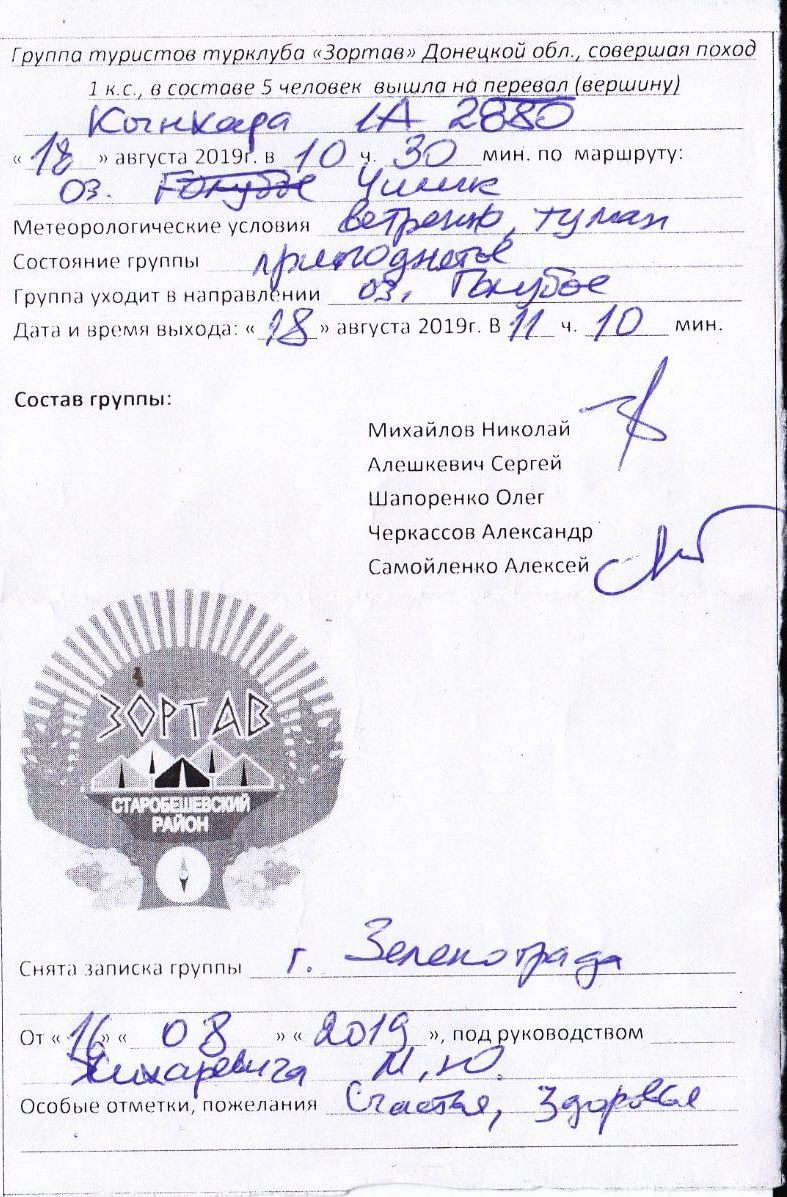 Группа туристов турклуба «Зортав» Донецкой обл., совершая поход
1 к.с., в составе 5 человек вышла на перевал (вершину)
Кынхара 1А 2880
« 18 » августа 2019г. в 10 ч. 30 мин. по маршруту:
оз. Голубое Чилик
Метеорологические условия ветрено, туман
Состояние группы приподнятое
Группа уходит в направлении оз. Голубое
Дата и время выхода: « 18 » августа 2019г. В 11 ч. 10 мин.
Состав группы:
Михайлов Николай
Алешкевич Сергей
Шапоренко Олег
Черкассов Александр
Самойленко Алексей
ЗОРТАВ
СТАРОБЕШЕВСКИЙ
РАЙОН
Снята записка группы г. Зеленограда
От « 16 » « 08 » « 2019 », под руководством
Жихаревича М.Ю.
Особые отметки, пожелания Счастья, Здоровья